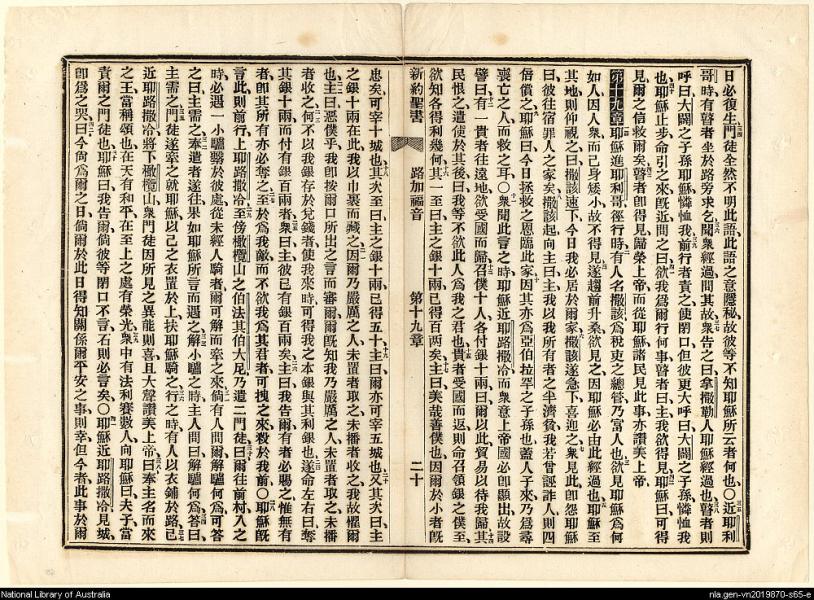 日必復生門徒全然不明此語此語之意隱秘故彼等不知耶穌所云者何也○近耶利
哥時有瞽者坐於路旁求乞聞衆經過問其故衆告之曰拿撒勒人耶穌經過也瞽者則
呼曰大闢之子孫耶穌憐恤我前行者責之使閉口但彼更大呼曰大闢之子孫憐恤我
也耶穌止步命引之來旣近問之曰欲我爲爾行何事瞽者曰主我欲得見耶穌曰可得
見爾之信救爾矣瞽者卽得見歸榮上帝而從耶穌諸民見此事亦讚美上帝
第十九章耶穌進耶利哥徑行時有人名撒該爲稅吏之總管乃富人也欲見耶穌爲何
如人因人衆而己身矮小故不得見遂趨前升桑欲見之因耶穌必由此經過也耶穌至
其地則仰視之曰撒該速下今日我必居於爾家撒該遂急下喜迎之衆見此卽怨耶穌
曰彼往宿罪人之家矣撒該起向主曰主我以我所有者之半濟貧我若曾誣詐人則四
倍償之耶穌曰今日拯救之恩臨此家因其亦爲亞伯拉罕之子孫也蓋人子來乃爲尋
喪亡之人而救之耳○衆聞此言之時耶穌近耶路撒冷而衆意上帝國必卽顯出故設
譬曰有一貴者往遠地欲受國而歸召僕十人各付銀十兩曰爾以此貿易以待我歸其
民恨之遣使於其後曰我等不欲此人爲我之君也貴者受國而返則命召領銀之僕至
欲知各得利幾何其一至曰主之銀十兩已得百两矣主曰美哉善僕也因爾於小者旣
新約聖書 路加福音 第十九章 二十
忠矣可宰十城也其次至曰主之銀十兩已得五十主曰爾亦可宰五城也又其次曰主
之銀十兩在此我以巾裹而藏之因爾乃嚴厲之人未置者取之未播者收之我故懼爾
也主曰惡僕乎我卽按爾口所出之言而審爾爾旣知我乃嚴厲之人未置者取之未播
者收之何不以我銀存於兌錢者使我來時可得我之本銀與其利銀也遂命左右曰奪
其銀十兩而付有銀百兩者衆曰主彼已有銀百兩矣主曰我告爾有者必賜之惟無有
者卽其所有亦必奪之至於爲我敵而不欲我爲其君者可拽之來殺於我前○耶穌旣
言此則前行上耶路撒冷至傍橄欖山之伯法其伯大尼乃遣二門徒曰爾往前村入之
時必遇一小驢繫於彼處從未經人騎者爾可解而牽之來倘有人問爾解驢何爲可答
之曰主需之奉遣者遂往果如耶穌所言而遇之解小驢之時主人問曰解驢何爲答曰
主需之門徒遂牽之就耶穌以己之衣置於上扶耶穌騎之行之時有人以衣鋪於路已
近耶路撒冷將下橄欖山衆門徒因所見之異能則喜且大聲讚美上帝曰奉主名而來
之王當稱頌也在天有和平在至上之處有榮光衆中有法利賽數人向耶穌曰夫子當
責爾之門徒也耶穌曰我告爾倘彼等閉口不言石則必言矣○耶穌近耶路撒冷見城
卽爲之哭曰今尙爲爾之日倘爾於此日得知關係爾平安之事則幸但今者此事於爾
National Library of Australia
nla.gen-vn2019870-s65-e